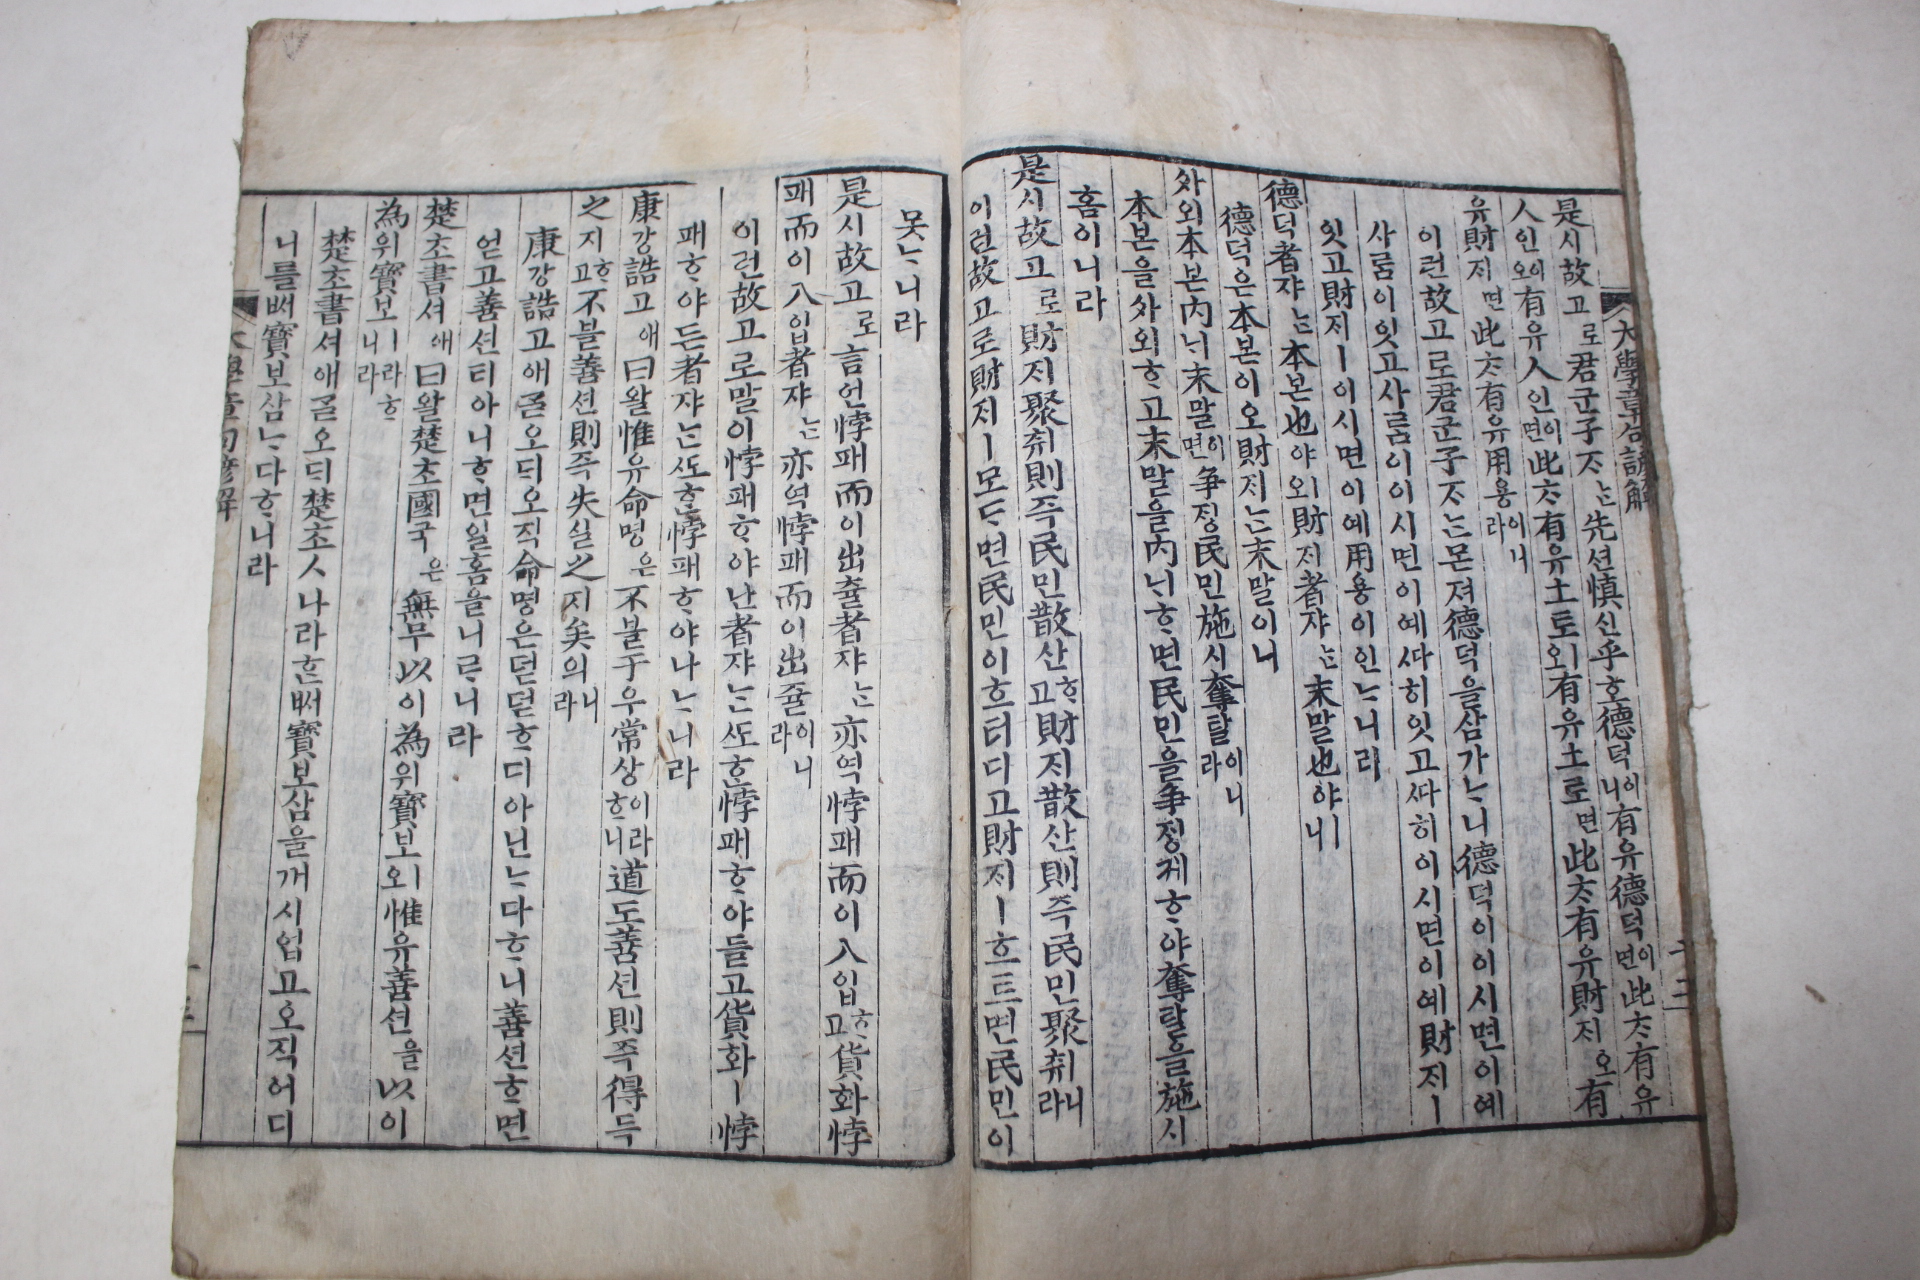 大學章句諺解
是시故고로君군子ᄌᆞᄂᆞᆫ先션慎신乎호德덕이니有유德덕이면此ᄎᆞ有유
人인이오有유人인이면此ᄎᆞ有유土토ㅣ오有유土토ㅣ면此ᄎᆞ有유財ᄌᆡ오有
유財ᄌᆡ면此ᄎᆞ有유用용이니라
이런故고로君군子ᄌᆞᄂᆞᆫ몬져德덕을삼가ᄂᆞ니德덕이이시면이예
사ᄅᆞᆷ이잇고사ᄅᆞᆷ이이시면이예ᄯᅡ히잇고ᄯᅡ히이시면이예財ᄌᆡㅣ
잇고財ᄌᆡㅣ이시면이예用용이인ᄂᆞ니라
德덕者쟈ᄂᆞᆫ本본也야ㅣ오財ᄌᆡ者쟈ᄂᆞᆫ末말也야ㅣ니
德덕은本본이오財ᄌᆡᄂᆞᆫ末말이니
外외本본內ᄂᆡ末말이면爭ᄌᆡᆼ民민施시奪탈이니라
本본을外외ᄒᆞ고末말을內ᄂᆡᄒᆞ면民민을爭ᄌᆡᆼ케ᄒᆞ야奪탈을施시
홈이니라
是시故고로財ᄌᆡ聚취則즉民민散산ᄒᆞ고財ᄌᆡ散산則즉民민聚취니라
이런故고로財ᄌᆡㅣ모ᄃᆞ면民민이흐터디고財ᄌᆡㅣ흐트면民민이
못ᄂᆞ니라
是시故고로言언悖패而이出츌者쟈ᄂᆞᆫ亦역悖패而이入입ᄒᆞ고貨화悖
패而이入입者쟈ᄂᆞᆫ亦역悖패而이出츌이니라
이런故고로말이悖패ᄒᆞ야난者쟈ᄂᆞᆫᄯᅩᄒᆞᆫ悖패ᄒᆞ야들고貨화ㅣ悖
패ᄒᆞ야든者쟈ᄂᆞᆫᄯᅩᄒᆞᆫ悖패ᄒᆞ야나ᄂᆞ니라
康강誥고애曰왈惟유命명은不불于우常상이라ᄒᆞ니道도善션則즉得득
之지ᄒᆞ고不불善션則즉失실之지矣의니라
康강誥고애ᄀᆞᆯ오ᄃᆡ오직命명은덛덛ᄒᆞ디아닌ᄂᆞ다ᄒᆞ니善션ᄒᆞ면
얻고善션티아니ᄒᆞ면일홈을니ᄅᆞ니라
楚초書셔애曰왈楚초國국은無무以이為위寶보ㅣ오惟유善션을以이
為위寶보ㅣ라ᄒᆞ니라
楚초書셔애ᄀᆞᆯ오ᄃᆡ楚초ㅅ나라흔ᄡᅥ寶보삼을개시업고오직어디
니를ᄡᅥ寶보삼ᄂᆞ다ᄒᆞ니라
大學章句諺解